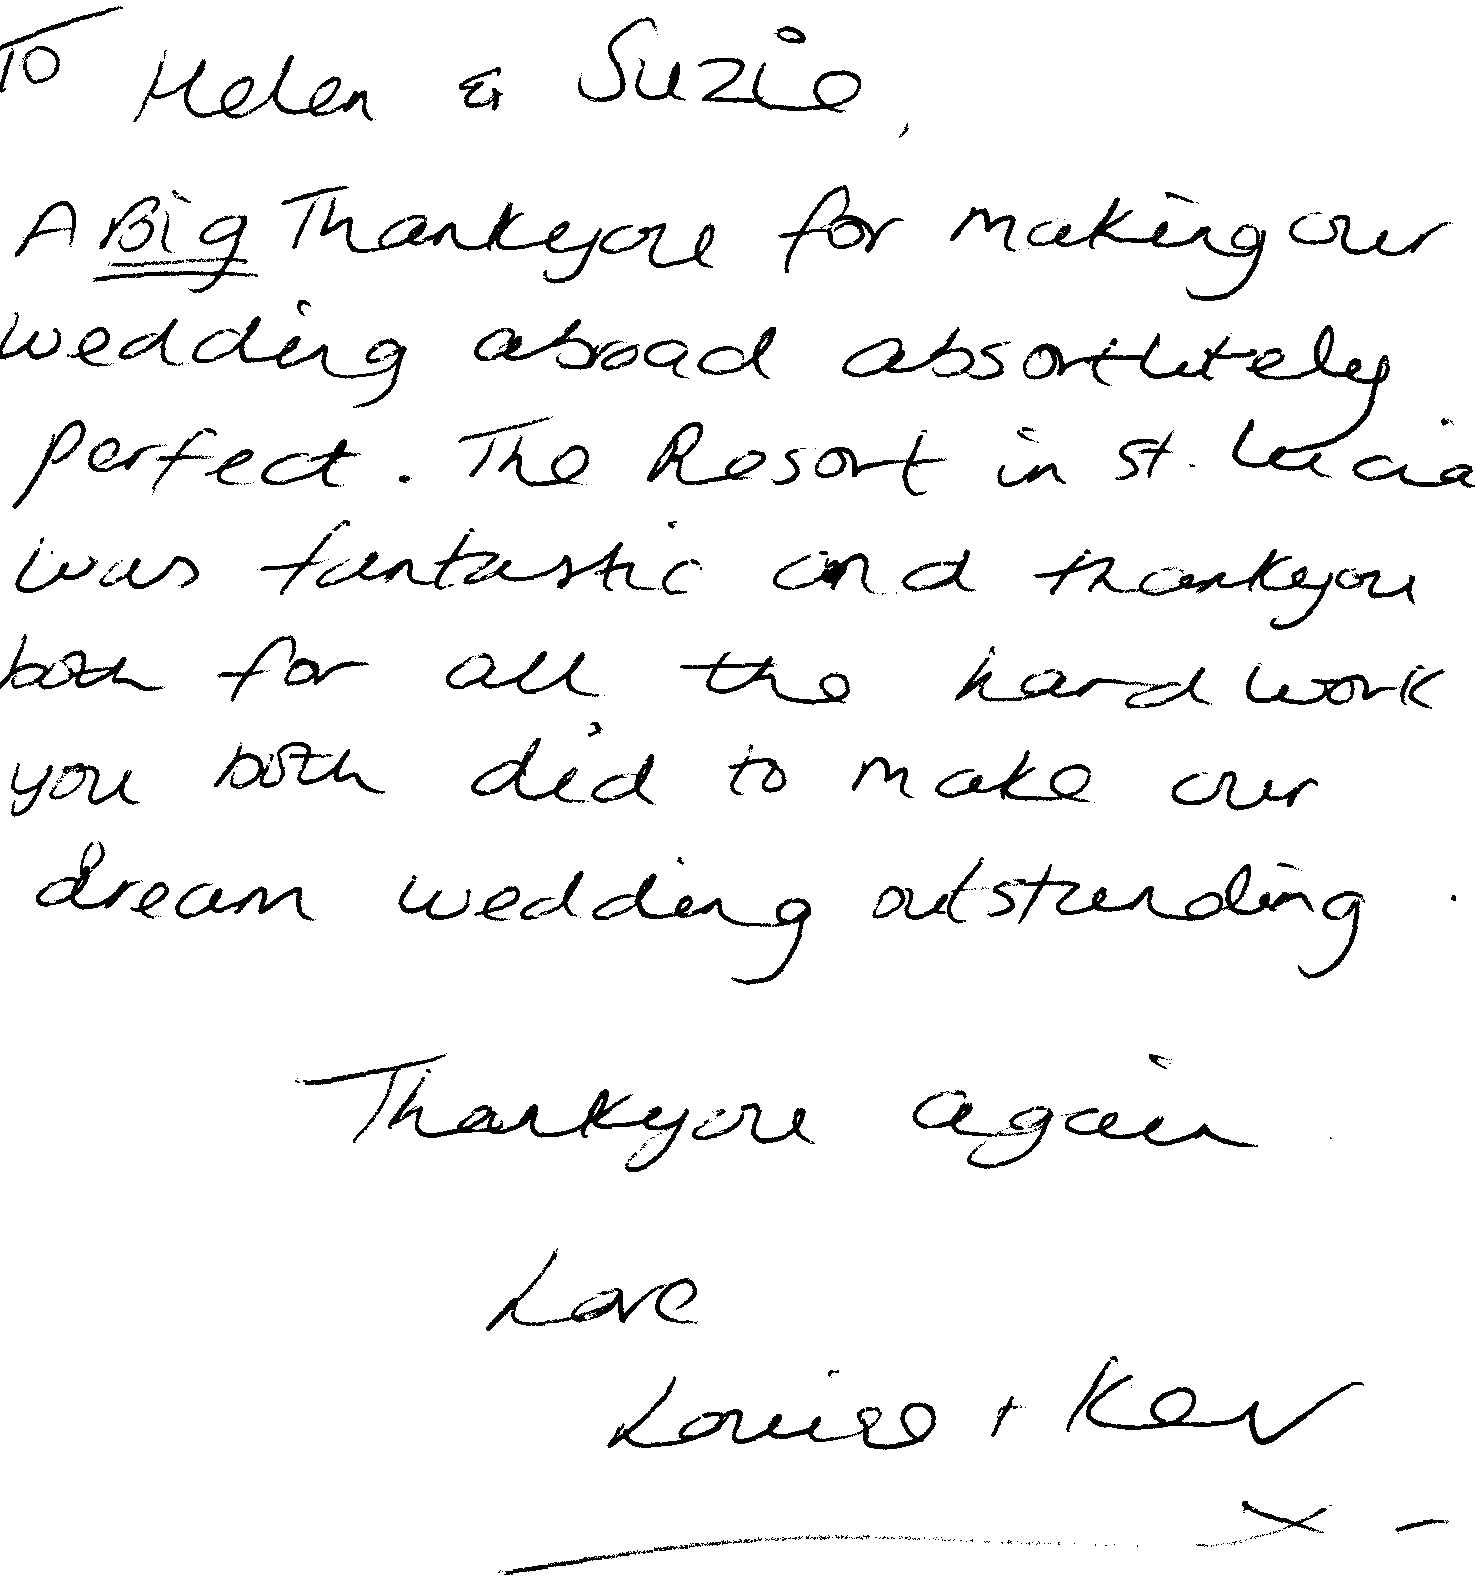 To Helen & Suzie,
A Big Thankyou for making our
wedding abroad absortlutely
perfect. The Resort in St. Lucia
was fantastic and thankyou
both for all the hard work
you both did to make our
dream wedding outstanding.
Thankyou again
Love
Louise + Kev
x